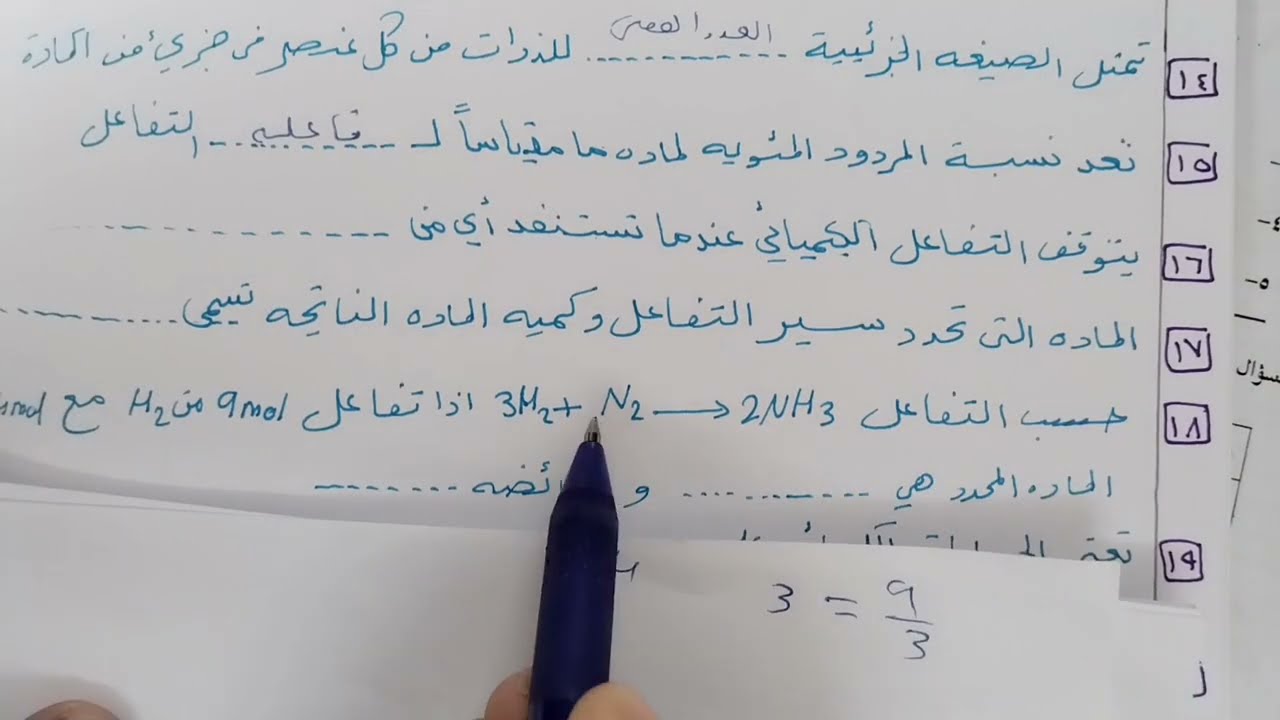 ١٤ تمثل الصيغه الجزئيية العدد الفعلي للذرات من كل عنصر في جزيء من المادة
١٥ تعد نسبة المردود المئويه لماده ما مقياساً لـ فاعليه التفاعل
١٦ يتوقف التفاعل الكيميائي عندما تستنفد أي من
١٧ الماده التي تحدد سير التفاعل وكميه الماده الناتجه تسمى
١٨ حسب التفاعل 3H2 + N2 → 2NH3 اذا تفاعل 9mol من H2 مع mol
الماده المحدد هي و ائضه
١٩
3 = 9/3
-٤
-٥
سؤال